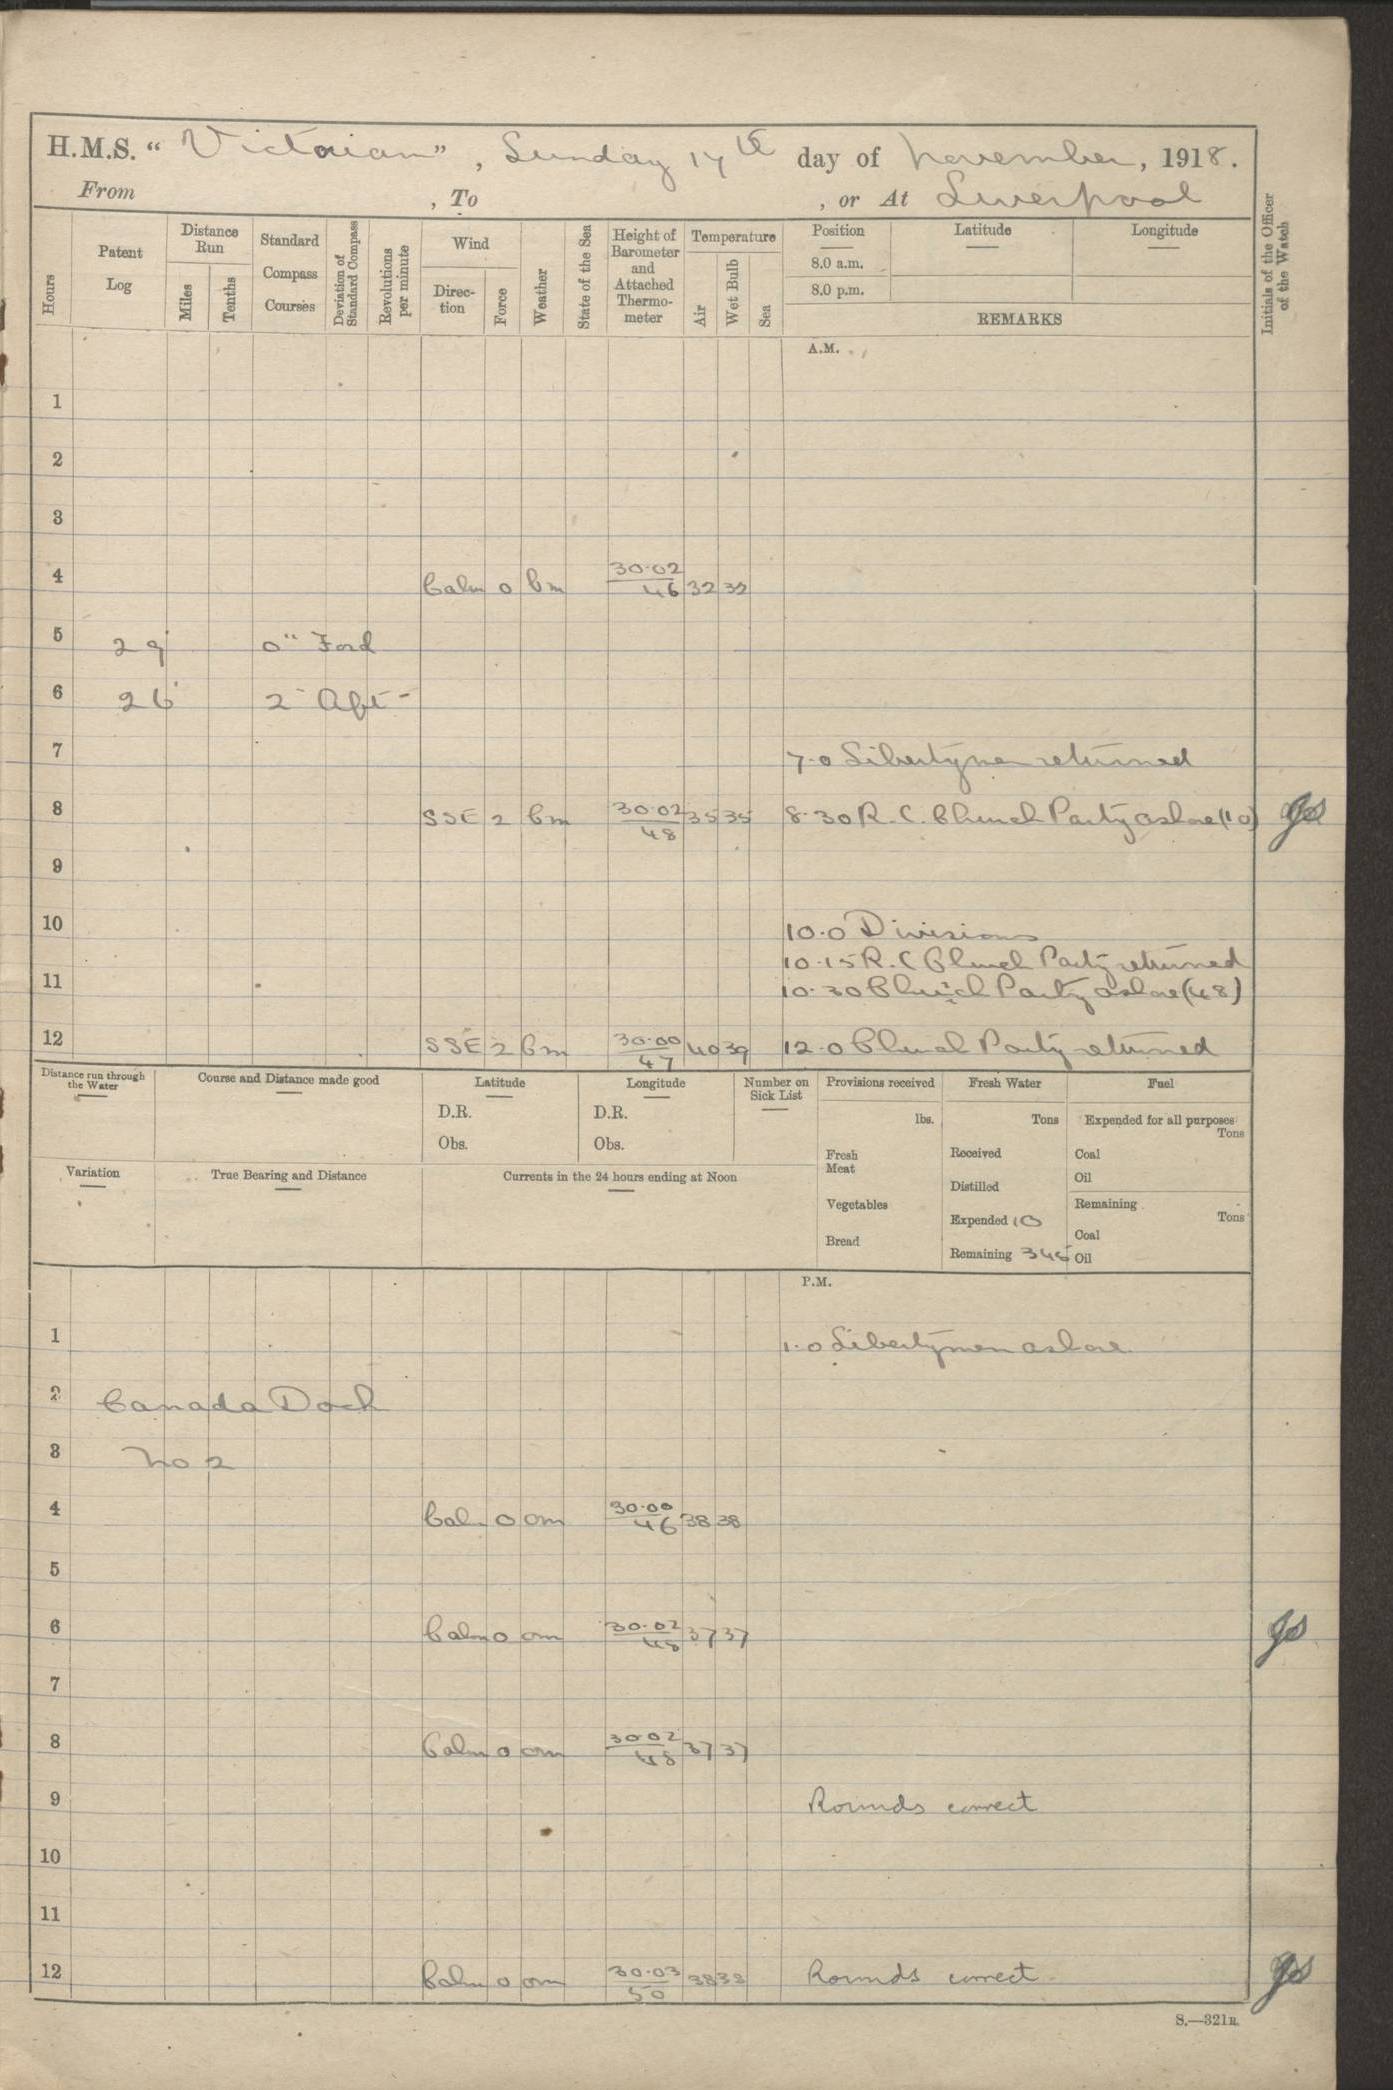 H.M.S. “Victorian”, Sunday 17th day of November, 1918.
From , To , or At Liverpool
Hours
Patent Log
Distance Run
Miles
Tenths
Standard Compass Courses
Deviation of Standard Compass
Revolutions per minute
Wind
Direction
Force
Weather
State of the Sea
Height of Barometer and Attached Thermometer
Temperature
Air
Wet Bulb
Sea
Position
8.0 a.m.
8.0 p.m.
Latitude
Longitude
REMARKS
Initials of the Officer of the Watch
A.M.
1
2
3
4 Calm 0 bm 30.02/46 32 32
5 29' 0" Ford
6 26' 2" Aft
7 7.0 Libertymen returned
8 SSE 2 bm 30.02/48 35 35 8.30 R.C. Church Party ashore (10)
9
10 10.0 Divisions
10.15 R.C Church Party returned
11 10.30 Church Party ashore (48)
12 SSE 2 bm 30.00/47 40 39 12.0 Church Party returned
Distance run through the Water
Course and Distance made good
Latitude
D.R.
Obs.
Longitude
D.R.
Obs.
Number on Sick List
Provisions received
lbs.
Fresh Meat
Vegetables
Bread
Fresh Water
Tons
Received
Distilled
Expended 10
Remaining 345
Fuel
Expended for all purposes
Tons
Coal
Oil
Remaining
Tons
Coal
Oil
Variation
True Bearing and Distance
Currents in the 24 hours ending at Noon
P.M.
1 1.0 Libertymen ashore
2 Canada Dock
3 No 2
4 Calm 0 om 30.00/46 38 38
5
6 Calm 0 om 30.02/48 37 37
7
8 Calm 0 om 30.02/48 37 37
9 Rounds correct
10
11
12 Calm 0 om 30.03/50 38 38 Rounds correct
S.—321B.